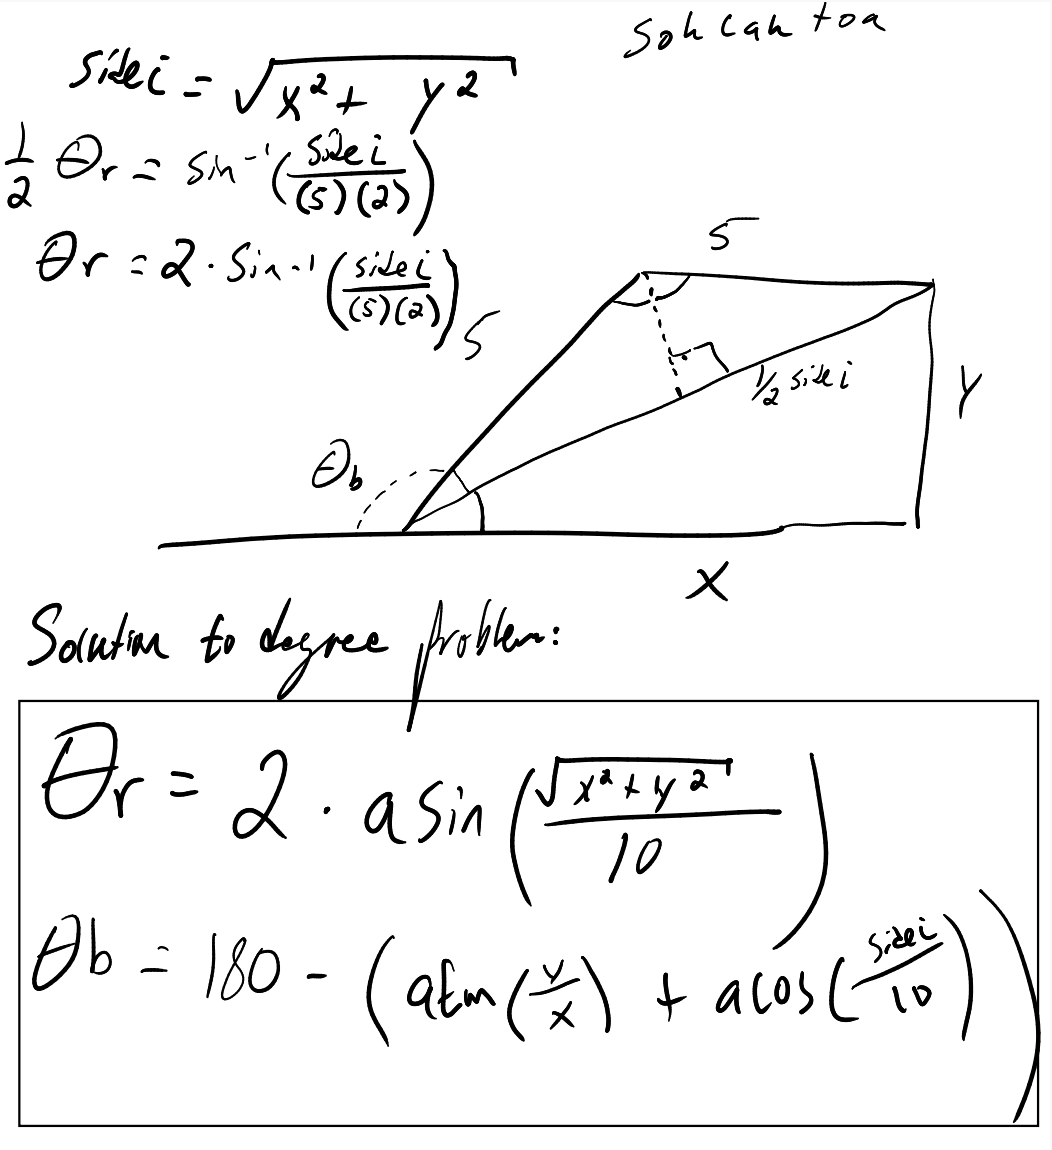 soh cah toa
side i = √(x² + y²)
1/2 θr = sin⁻¹(side i / (5)(2))
θr = 2 · sin⁻¹(side i / (5)(2))
5
5
1/2 side i
y
θb
x
Solution to degree problem:
θr = 2 · asin(√(x² + y²) / 10)
θb = 180 - (atan(y/x) + acos(side i / 10))